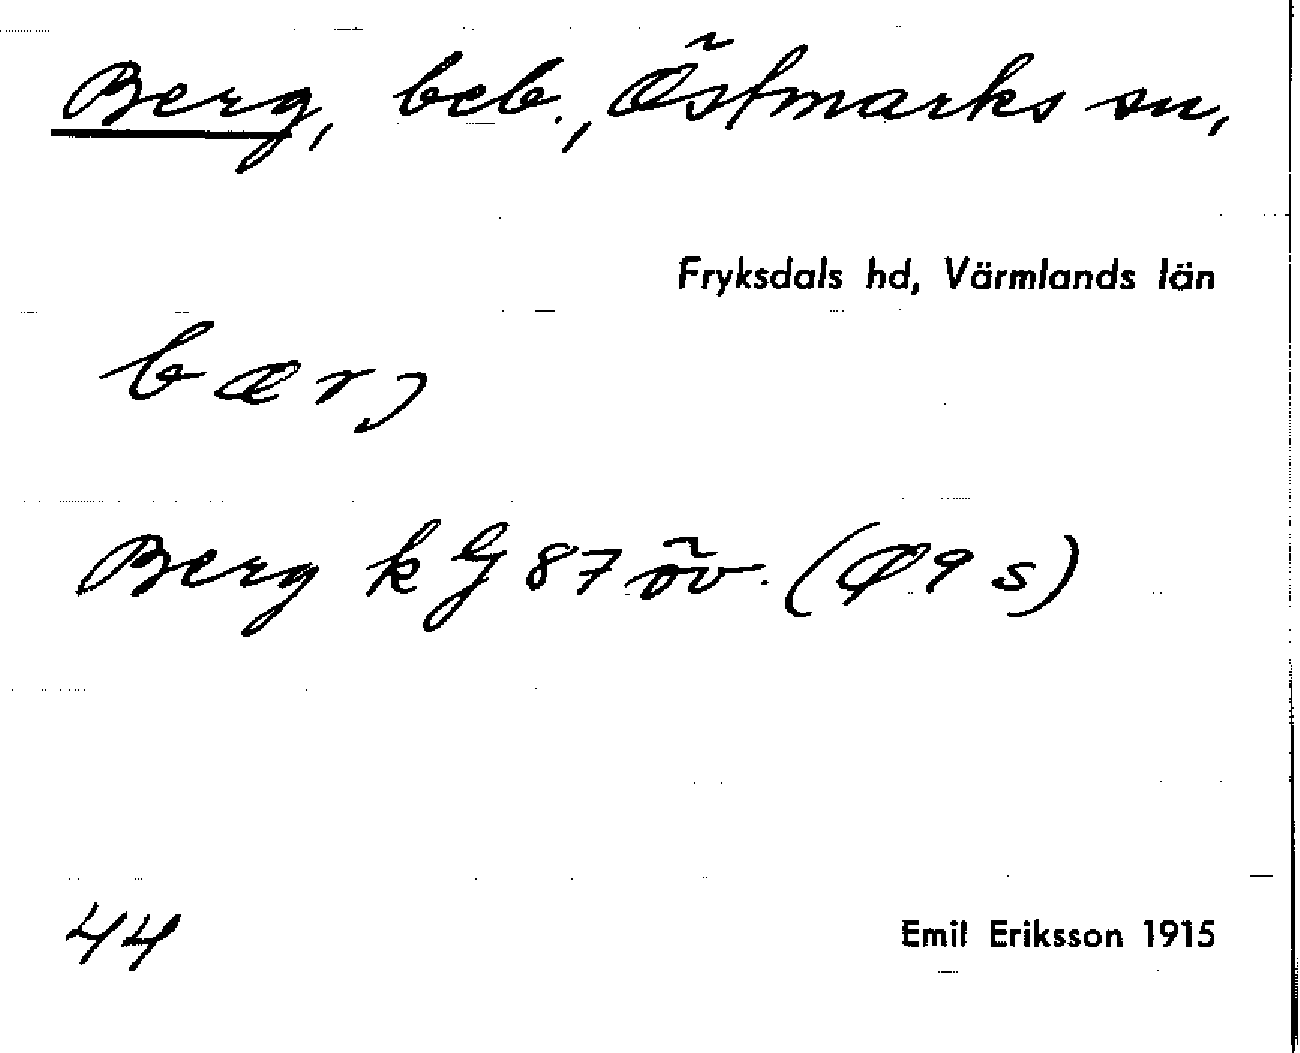 Berg, beb., Östmarks sn,
Fryksdals hd, Värmlands län
bærj
Berg k G 87 öv. (Ø 9 s)
44
Emil Eriksson 1915